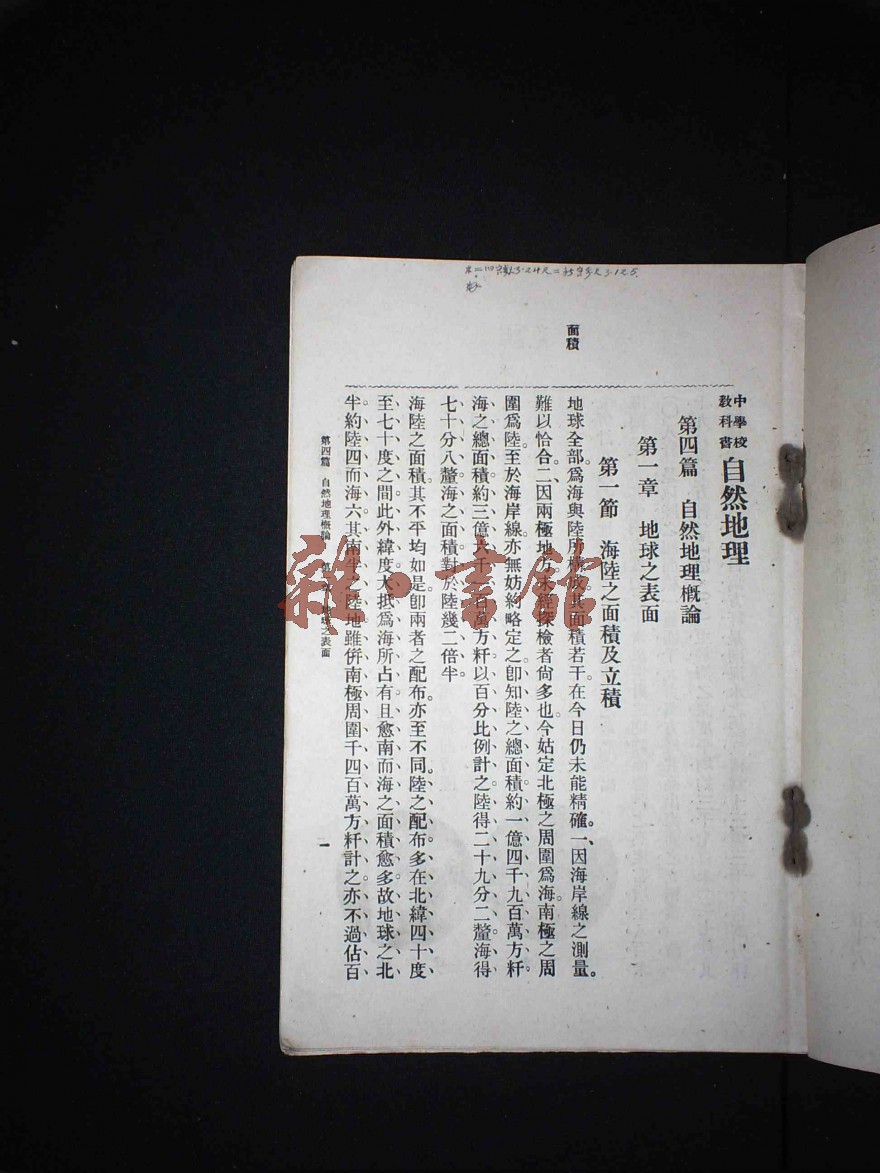 中學校
教科書
自然地理
第四篇 自然地理槪論
第一章 地球之表面
第一節 海陸之面積及立積
面積
地球全部爲海與陸所構成其面積若干在今日仍未能精確。一、因海岸線之測量。
難以恰合。二、因兩極地方未經探檢者尙多也。今姑定北極之周圍爲海。南極之周
圍爲陸。至於海岸線亦無妨約略定之卽知陸之總面積約一億四千九百萬方粁
海之總面積約三億六千一百萬方粁以百分比例計之陸得二十九分二釐海得
七十分八釐海之面積對於陸幾二倍半。
海陸之面積其不平均如是。卽兩者之配布亦至不同。陸之配布多在北緯四十度
至七十度之間此外緯度大抵爲海所占有且愈南而海之面積愈多故地球之北
半約陸四而海六其南半之陸地雖倂南極周圍千四百萬方粁計之亦不過佔百
第四篇 自然地理槪論 第一章 地球之表面
一
雜·書館